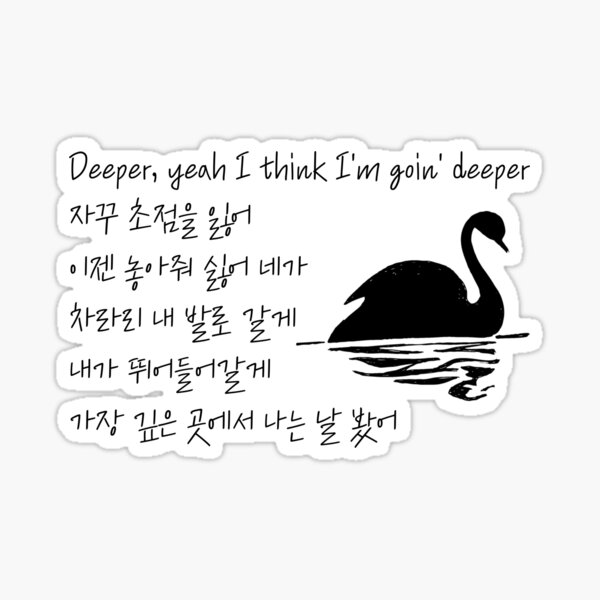 Deeper, yeah I think I'm goin' deeper
자꾸 초점을 잃어
이젠 놓아줘 싫어 네가
차라리 내 발로 갈게
내가 뛰어들어갈게
가장 깊은 곳에서 나는 날 봤어